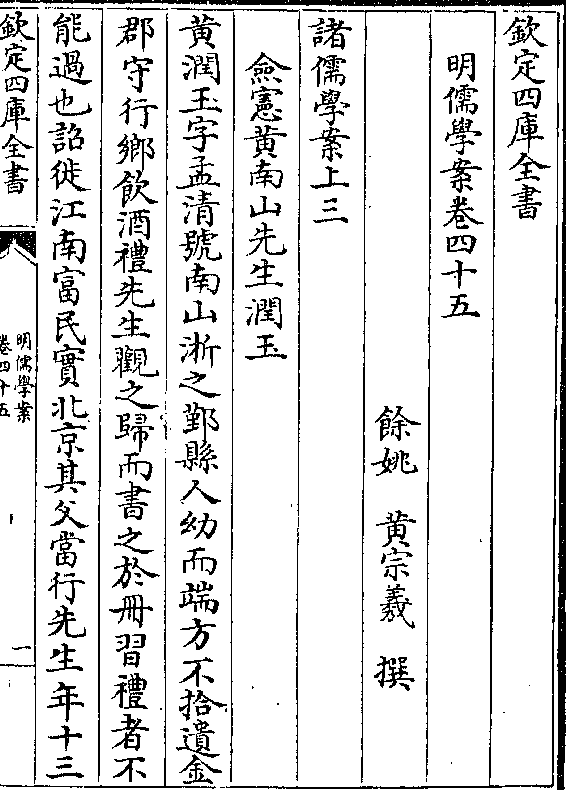 欽定四庫全書
明儒學案卷四十五
餘姚 黃宗羲 撰
諸儒學案上三
僉憲黃南山先生潤玉
黃潤玉字孟清號南山浙之鄞縣人幼而端方不拾遺金
郡守行鄉飲酒禮先生觀之歸而書之於冊習禮者不
能過也詔徙江南富民實北京其父當行先生年十三
欽定四庫全書
明儒學案
卷四十五
一